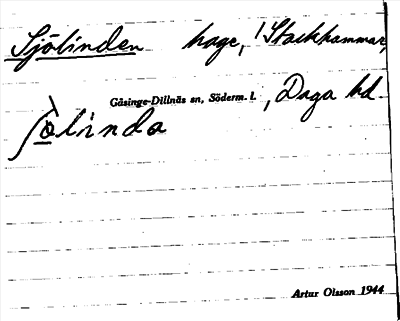 Sjölinden hage, 1 Stackhammar,
Gåsinge-Dillnäs sn, Söderm. l., Daga hd.
ʃò̲linda
Artur Olsson 1944